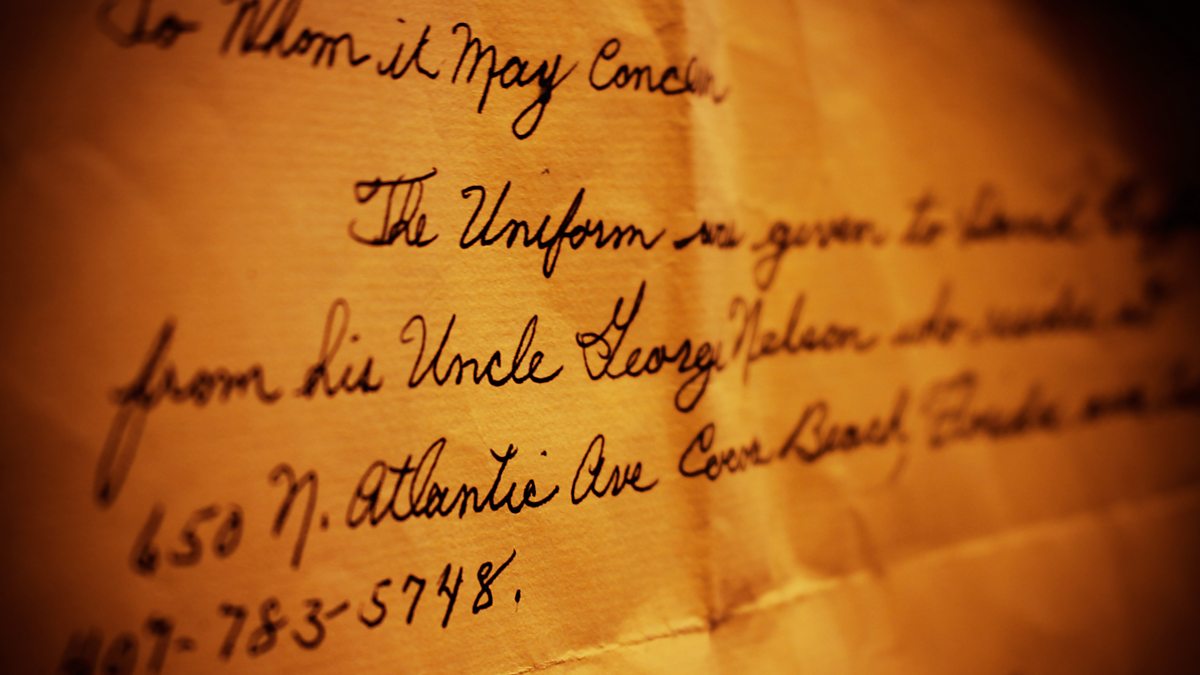 To Whom it May Concern
The Uniform are given to David
from his Uncle George Nelson who resides at
650 N. Atlantic Ave Cocoa Beach, Florida
407-783-5748.